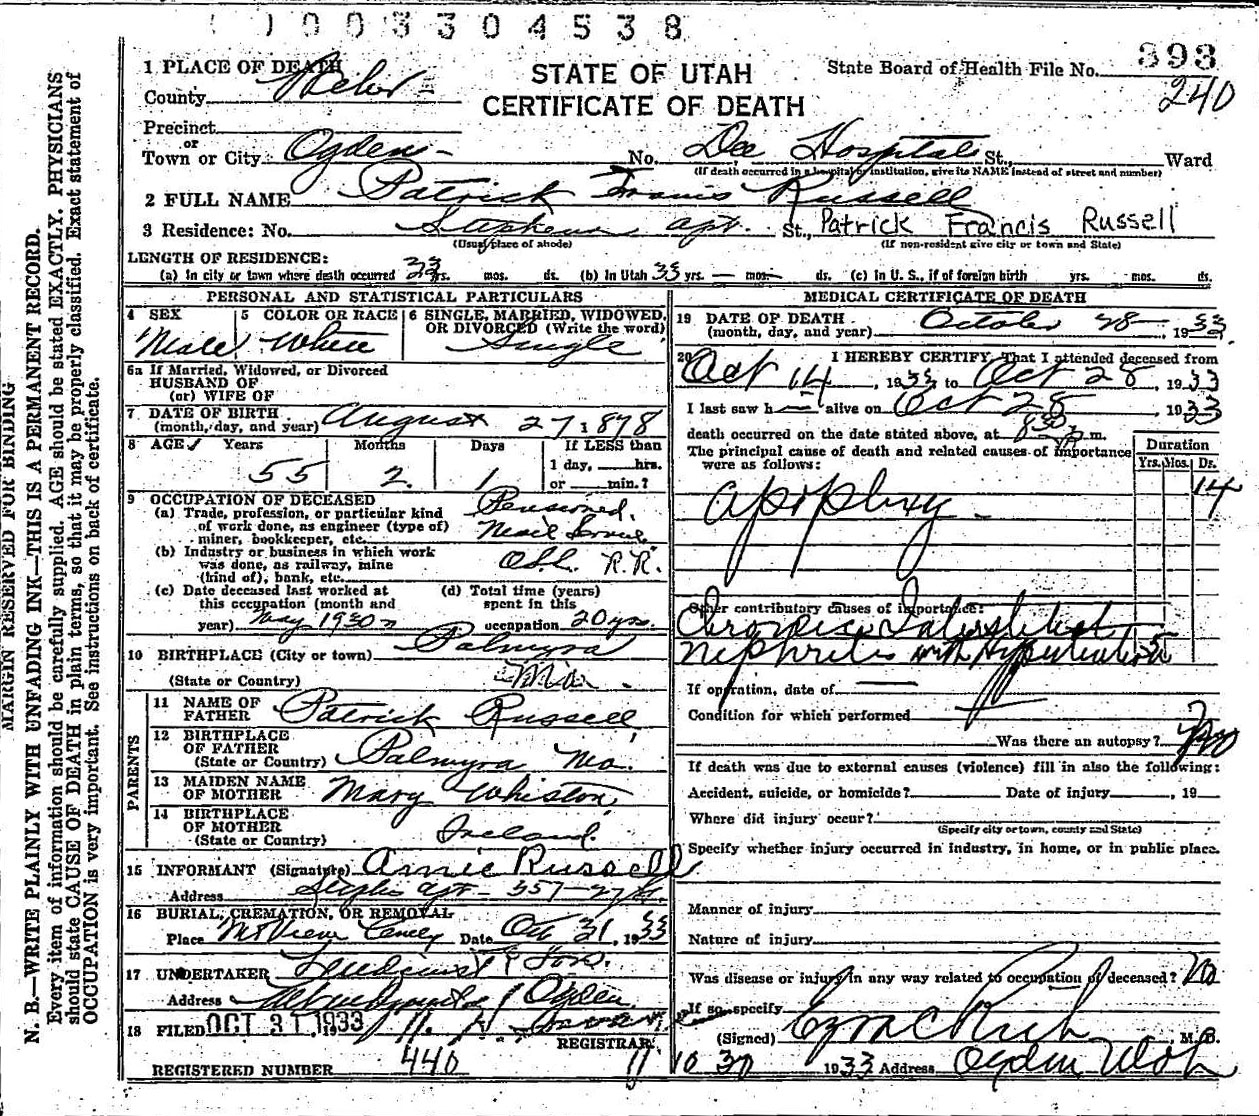 0 0 3 3 0 4 5 3 8
MARGIN RESERVED FOR BINDING
N. B.—WRITE PLAINLY WITH UNFADING INK—THIS IS A PERMANENT RECORD.
Every item of information should be carefully supplied. AGE should be stated EXACTLY. PHYSICIANS
should state CAUSE OF DEATH in plain terms, so that it may be properly classified. Exact statement of
OCCUPATION is very important. See instructions on back of certificate.
STATE OF UTAH
CERTIFICATE OF DEATH
State Board of Health File No. 393
240
1 PLACE OF DEATH
County Weber
Precinct
or
Town or City Ogden No. Dee Hospital St., Ward
(If death occurred in a hospital or institution, give its NAME instead of street and number)
2 FULL NAME Patrick Francis Russell
3 Residence: No. Stephens apt. St., Patrick Francis Russell
(Usual place of abode) (If non-resident give city or town and State)
LENGTH OF RESIDENCE:
(a) In city or town where death occurred 33 yrs. mos. ds. (b) In Utah 33 yrs. — mos. ds. (c) In U. S., if of foreign birth yrs. mos. ds.
PERSONAL AND STATISTICAL PARTICULARS
4 SEX Male
5 COLOR OR RACE White
6 SINGLE, MARRIED, WIDOWED,
OR DIVORCED (Write the word)
Single
6a If Married, Widowed, or Divorced
HUSBAND OF
(or) WIFE OF
7 DATE OF BIRTH
(month, day, and year) August 27 1878
8 AGE Years Months Days If LESS than
1 day, hrs.
or min.?
55 2 1
9 OCCUPATION OF DECEASED
(a) Trade, profession, or particular kind
of work done, as engineer (type of)
miner, bookkeeper, etc.
Pensioned.
(b) Industry or business in which work
was done, as railway, mine
(kind of), bank, etc.
O.S.L. R.R.
(c) Date deceased last worked at
this occupation (month and
year) May 1930
(d) Total time (years)
spent in this
occupation 20 yrs.
10 BIRTHPLACE (City or town) Palmyra
(State or Country) Mo.
PARENTS
11 NAME OF
FATHER Patrick Russell
12 BIRTHPLACE
OF FATHER
(State or Country) Palmyra Mo.
13 MAIDEN NAME
OF MOTHER Mary Whiston
14 BIRTHPLACE
OF MOTHER
(State or Country) Ireland.
15 INFORMANT (Signature) Annie Russell
Address apt - 357-27 St.
16 BURIAL, CREMATION, OR REMOVAL
Place Mt View Cemey Date Oct 31, 1933
17 UNDERTAKER & Sons.
Address Ogden
18 FILED OCT 31 1933
REGISTRAR
REGISTERED NUMBER 440
MEDICAL CERTIFICATE OF DEATH
19 DATE OF DEATH
(month, day, and year) October 28 — 1933
20 I HEREBY CERTIFY, That I attended deceased from
Oct 14, 1933 to Oct 28, 1933
I last saw h — alive on Oct 28, 1933
death occurred on the date stated above, at 8:30 P m.
The principal cause of death and related causes of importance
were as follows:
Duration
Yrs. Mos. Ds.
14
apoplexy
Other contributory causes of importance:
Chronic Interstitial
Nephritis with Hypertension 5
If operation, date of
Condition for which performed
Was there an autopsy? No
If death was due to external causes (violence) fill in also the following:
Accident, suicide, or homicide? Date of injury , 19
Where did injury occur?
(Specify city or town, county and State)
Specify whether injury occurred in industry, in home, or in public place.
Manner of injury
Nature of injury
Was disease or injury in any way related to occupation of deceased? No
If so, specify
(Signed) Ezra C Rich, M. D.
10 30 1933 Address Ogden Utah